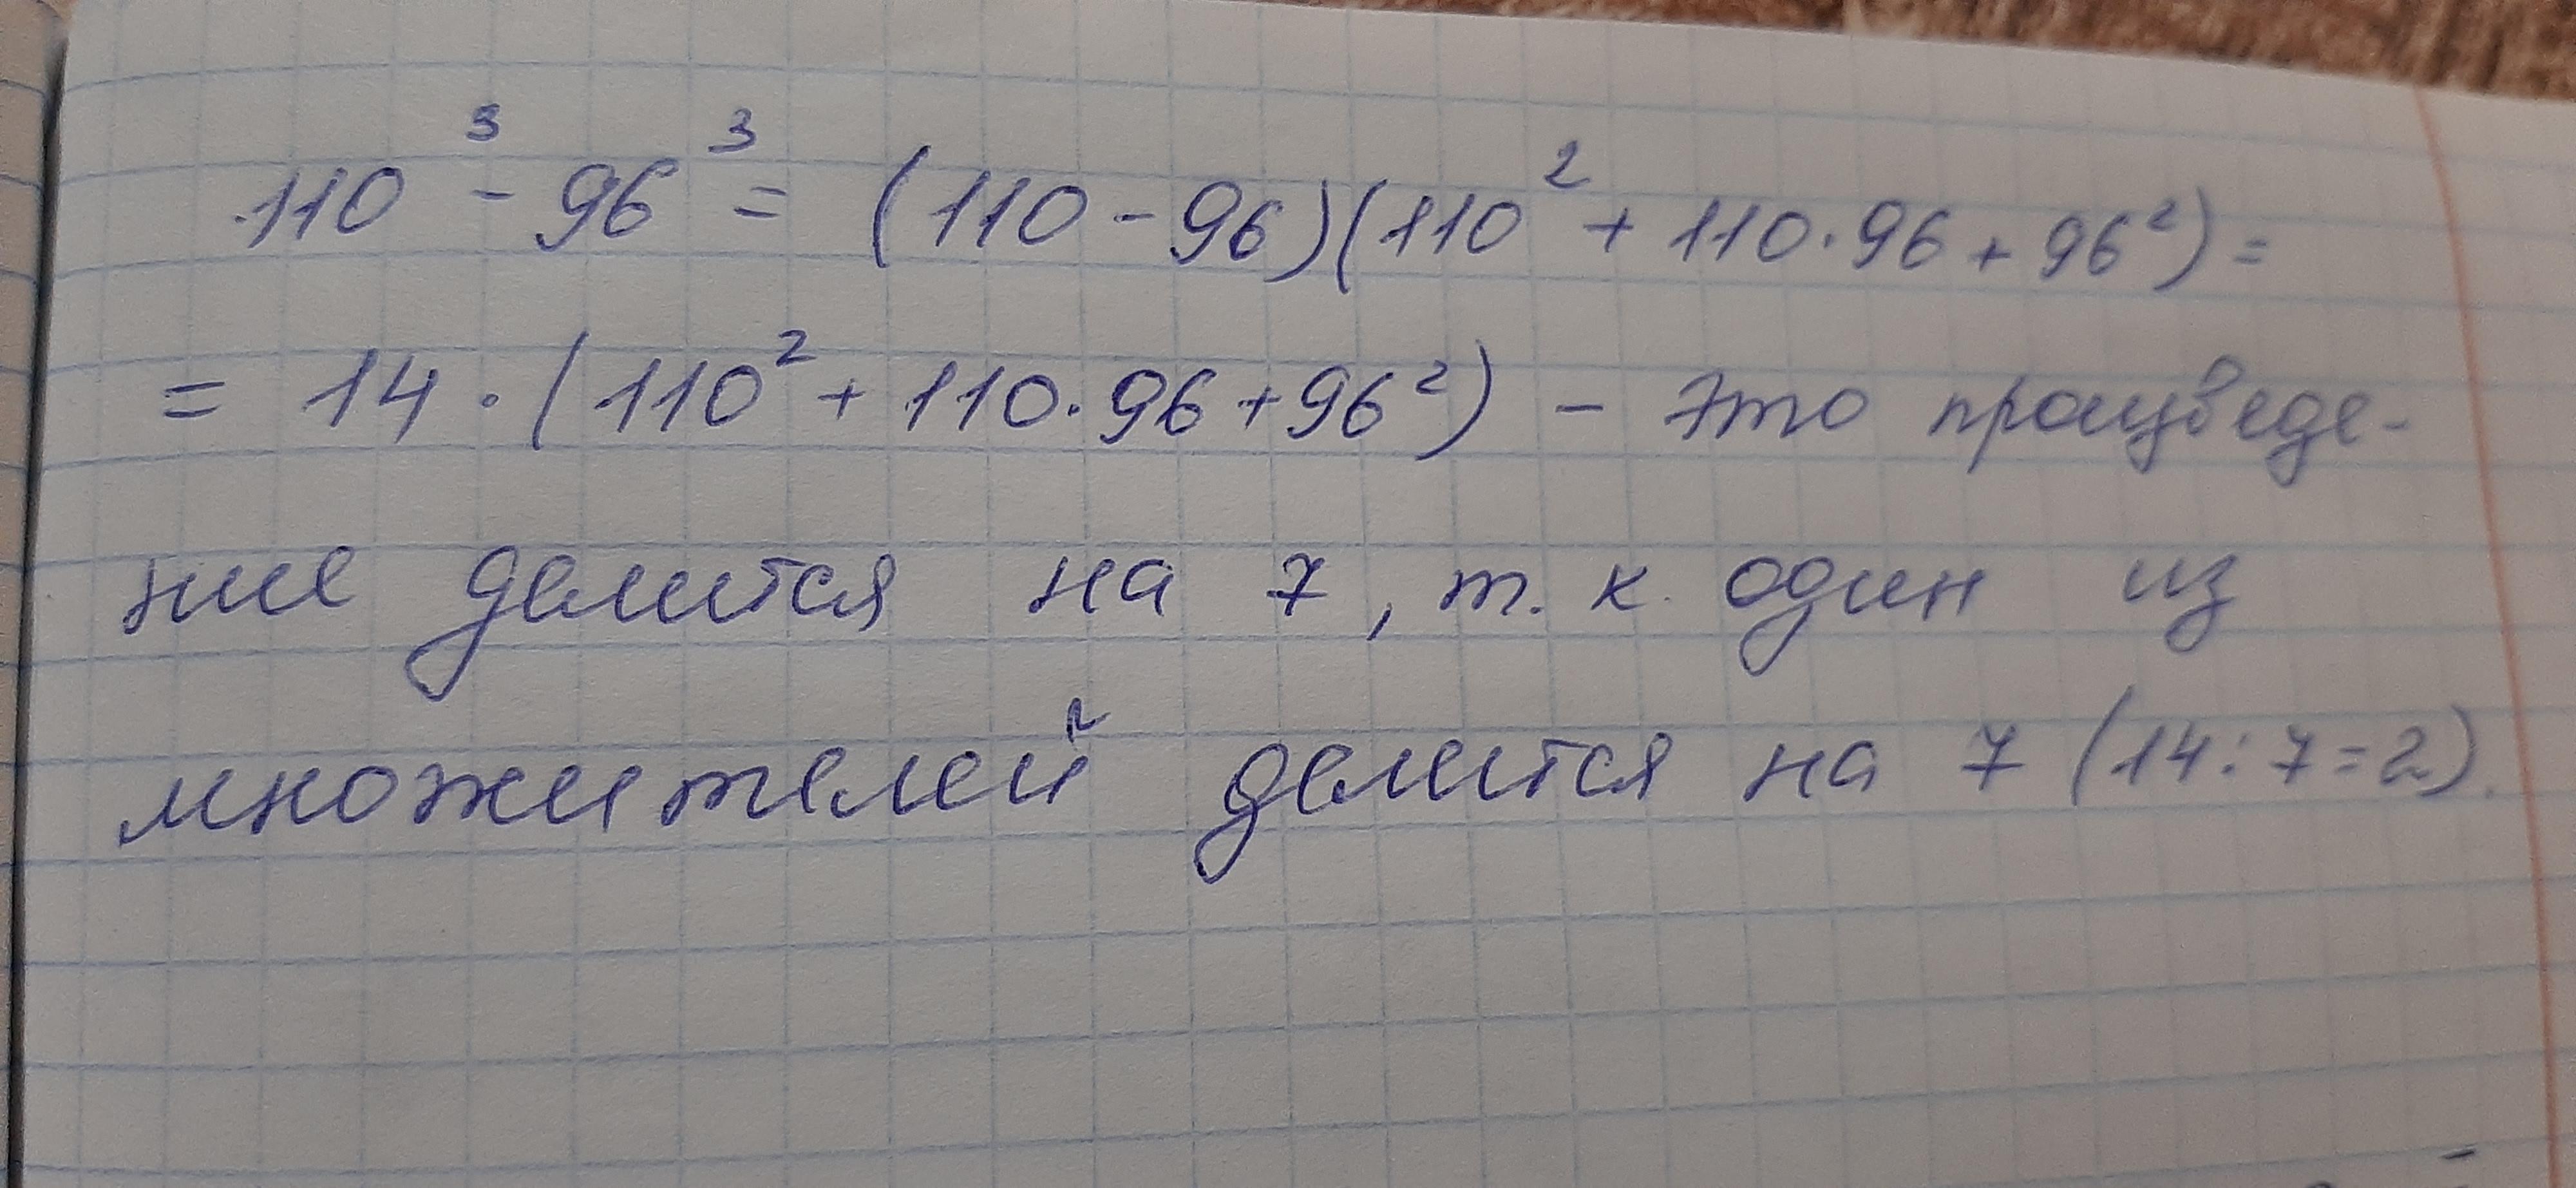 110³ - 96³ = (110 - 96)(110² + 110·96 + 96²) =
= 14 · (110² + 110·96 + 96²) - это произведе-
ние делится на 7, т. к. один из
множителей делится на 7 (14:7=2).